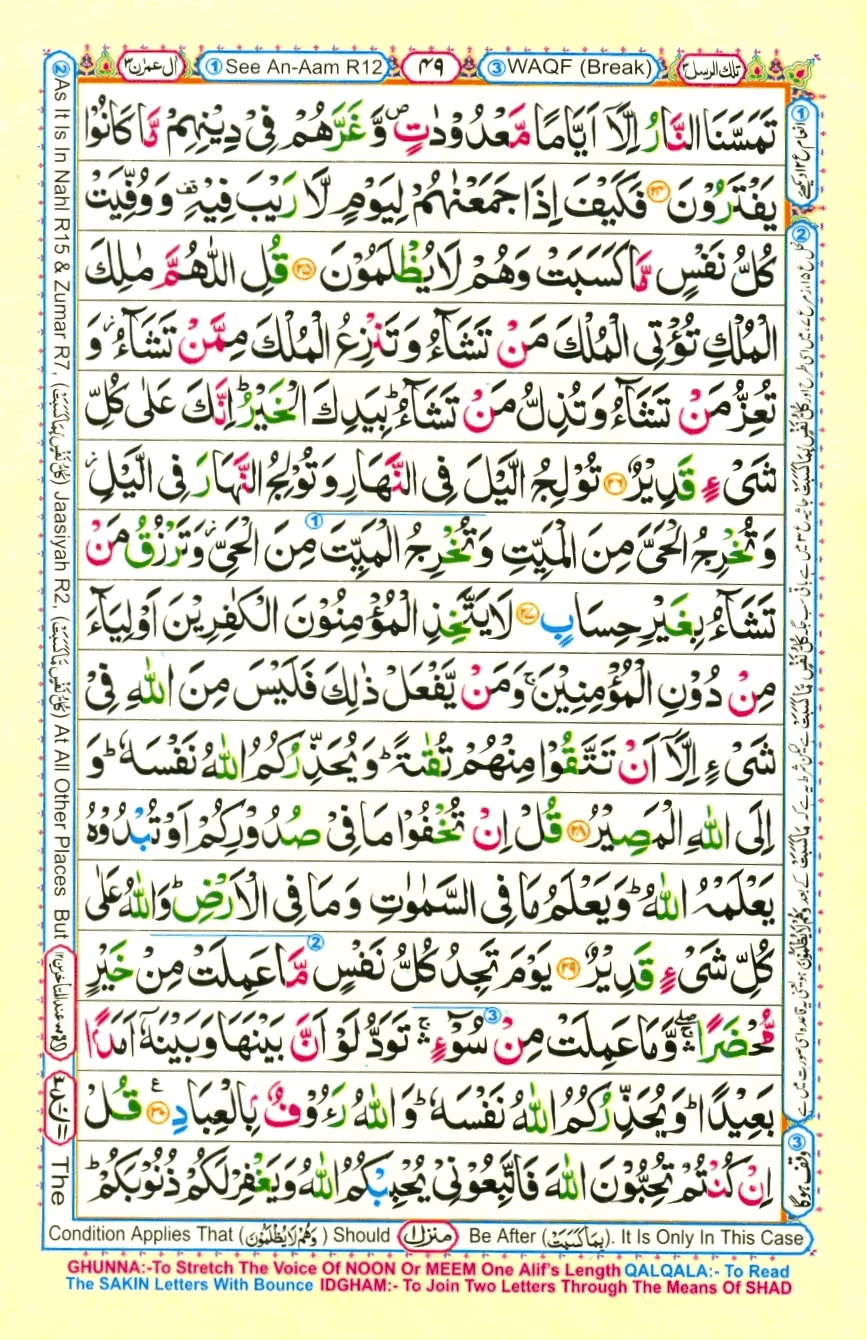 تلك الرسل ٣
③ WAQF (Break)
٤٩
① See An-Aam R12
ال عمرٰن ٣
تَمَسَّنَا النَّارُ اِلَّاۤ اَيَّامًا مَّعْدُوْدٰتٍ ۪ وَّ غَرَّهُمْ فِىْ دِيْنِهِمْ مَّا كَانُوْا
يَفْتَرُوْنَ ۝۲۴ فَكَيْفَ اِذَا جَمَعْنٰهُمْ لِيَوْمٍ لَّا رَيْبَ فِيْهِ ۫ وَ وُفِّيَتْ
كُلُّ نَفْسٍ مَّا كَسَبَتْ وَهُمْ لَا يُظْلَمُوْنَ ۝۲۵ قُلِ اللّٰهُمَّ مٰلِكَ
الْمُلْكِ تُؤْتِى الْمُلْكَ مَنْ تَشَآءُ وَ تَنْزِعُ الْمُلْكَ مِمَّنْ تَشَآءُ ؗ وَ
تُعِزُّ مَنْ تَشَآءُ وَ تُذِلُّ مَنْ تَشَآءُ ؕ بِيَدِكَ الْخَيْرُ ؕ اِنَّكَ عَلٰى كُلِّ
شَىْءٍ قَدِيْرٌ ۝۲۶ تُوْلِجُ الَّيْلَ فِى النَّهَارِ وَ تُوْلِجُ النَّهَارَ فِى الَّيْلِ ؗ
وَ تُخْرِجُ الْحَىَّ مِنَ الْمَيِّتِ وَ تُخْرِجُ الْمَيِّتَ مِنَ الْحَىِّ ؗ وَ تَرْزُقُ مَنْ ①
تَشَآءُ بِغَيْرِ حِسَابٍ ۝۲۷ لَا يَتَّخِذِ الْمُؤْمِنُوْنَ الْكٰفِرِيْنَ اَوْلِيَآءَ
مِنْ دُوْنِ الْمُؤْمِنِيْنَ ۚ وَمَنْ يَّفْعَلْ ذٰلِكَ فَلَيْسَ مِنَ اللّٰهِ فِىْ
شَىْءٍ اِلَّاۤ اَنْ تَتَّقُوْا مِنْهُمْ تُقٰىةً ؕ وَ يُحَذِّرُكُمُ اللّٰهُ نَفْسَهٗ ؕ وَ
اِلَى اللّٰهِ الْمَصِيْرُ ۝۲۸ قُلْ اِنْ تُخْفُوْا مَا فِىْ صُدُوْرِكُمْ اَوْ تُبْدُوْهُ
يَعْلَمْهُ اللّٰهُ ؕ وَ يَعْلَمُ مَا فِى السَّمٰوٰتِ وَ مَا فِى الْاَرْضِ ؕ وَ اللّٰهُ عَلٰى
كُلِّ شَىْءٍ قَدِيْرٌ ۝۲۹ يَوْمَ تَجِدُ كُلُّ نَفْسٍ ② مَّا عَمِلَتْ مِنْ خَيْرٍ
مُّحْضَرًا ۖۛۚ وَّ مَا عَمِلَتْ مِنْ سُوْٓءٍ ③ ۛۚ تَوَدُّ لَوْ اَنَّ بَيْنَهَا وَ بَيْنَهٗۤ اَمَدًۢا
بَعِيْدًا ؕ وَ يُحَذِّرُكُمُ اللّٰهُ نَفْسَهٗ ؕ وَ اللّٰهُ رَءُوْفٌۢ بِالْعِبَادِ ۝۳۰ ع قُلْ
اِنْ كُنْتُمْ تُحِبُّوْنَ اللّٰهَ فَاتَّبِعُوْنِىْ يُحْبِبْكُمُ اللّٰهُ وَ يَغْفِرْ لَكُمْ ذُنُوْبَكُمْ ؕ
③ وقف ہوگا
② As It Is In Nahl R15 & Zumar R7, (كُلُّ نَفْسٍ بِمَا كَسَبَتْ) Jaasiyah R2, (كُلُّ نَفْسٍ مَّا كَسَبَتْ) At All Other Places But
The
Condition Applies That (وَهُمْ لَا يُظْلَمُوْنَ) Should منزل ١ Be After (بِمَا كَسَبَتْ). It Is Only In This Case
GHUNNA:-To Stretch The Voice Of NOON Or MEEM One Alif's Length QALQALA:- To Read
The SAKIN Letters With Bounce IDGHAM:- To Join Two Letters Through The Means Of SHAD